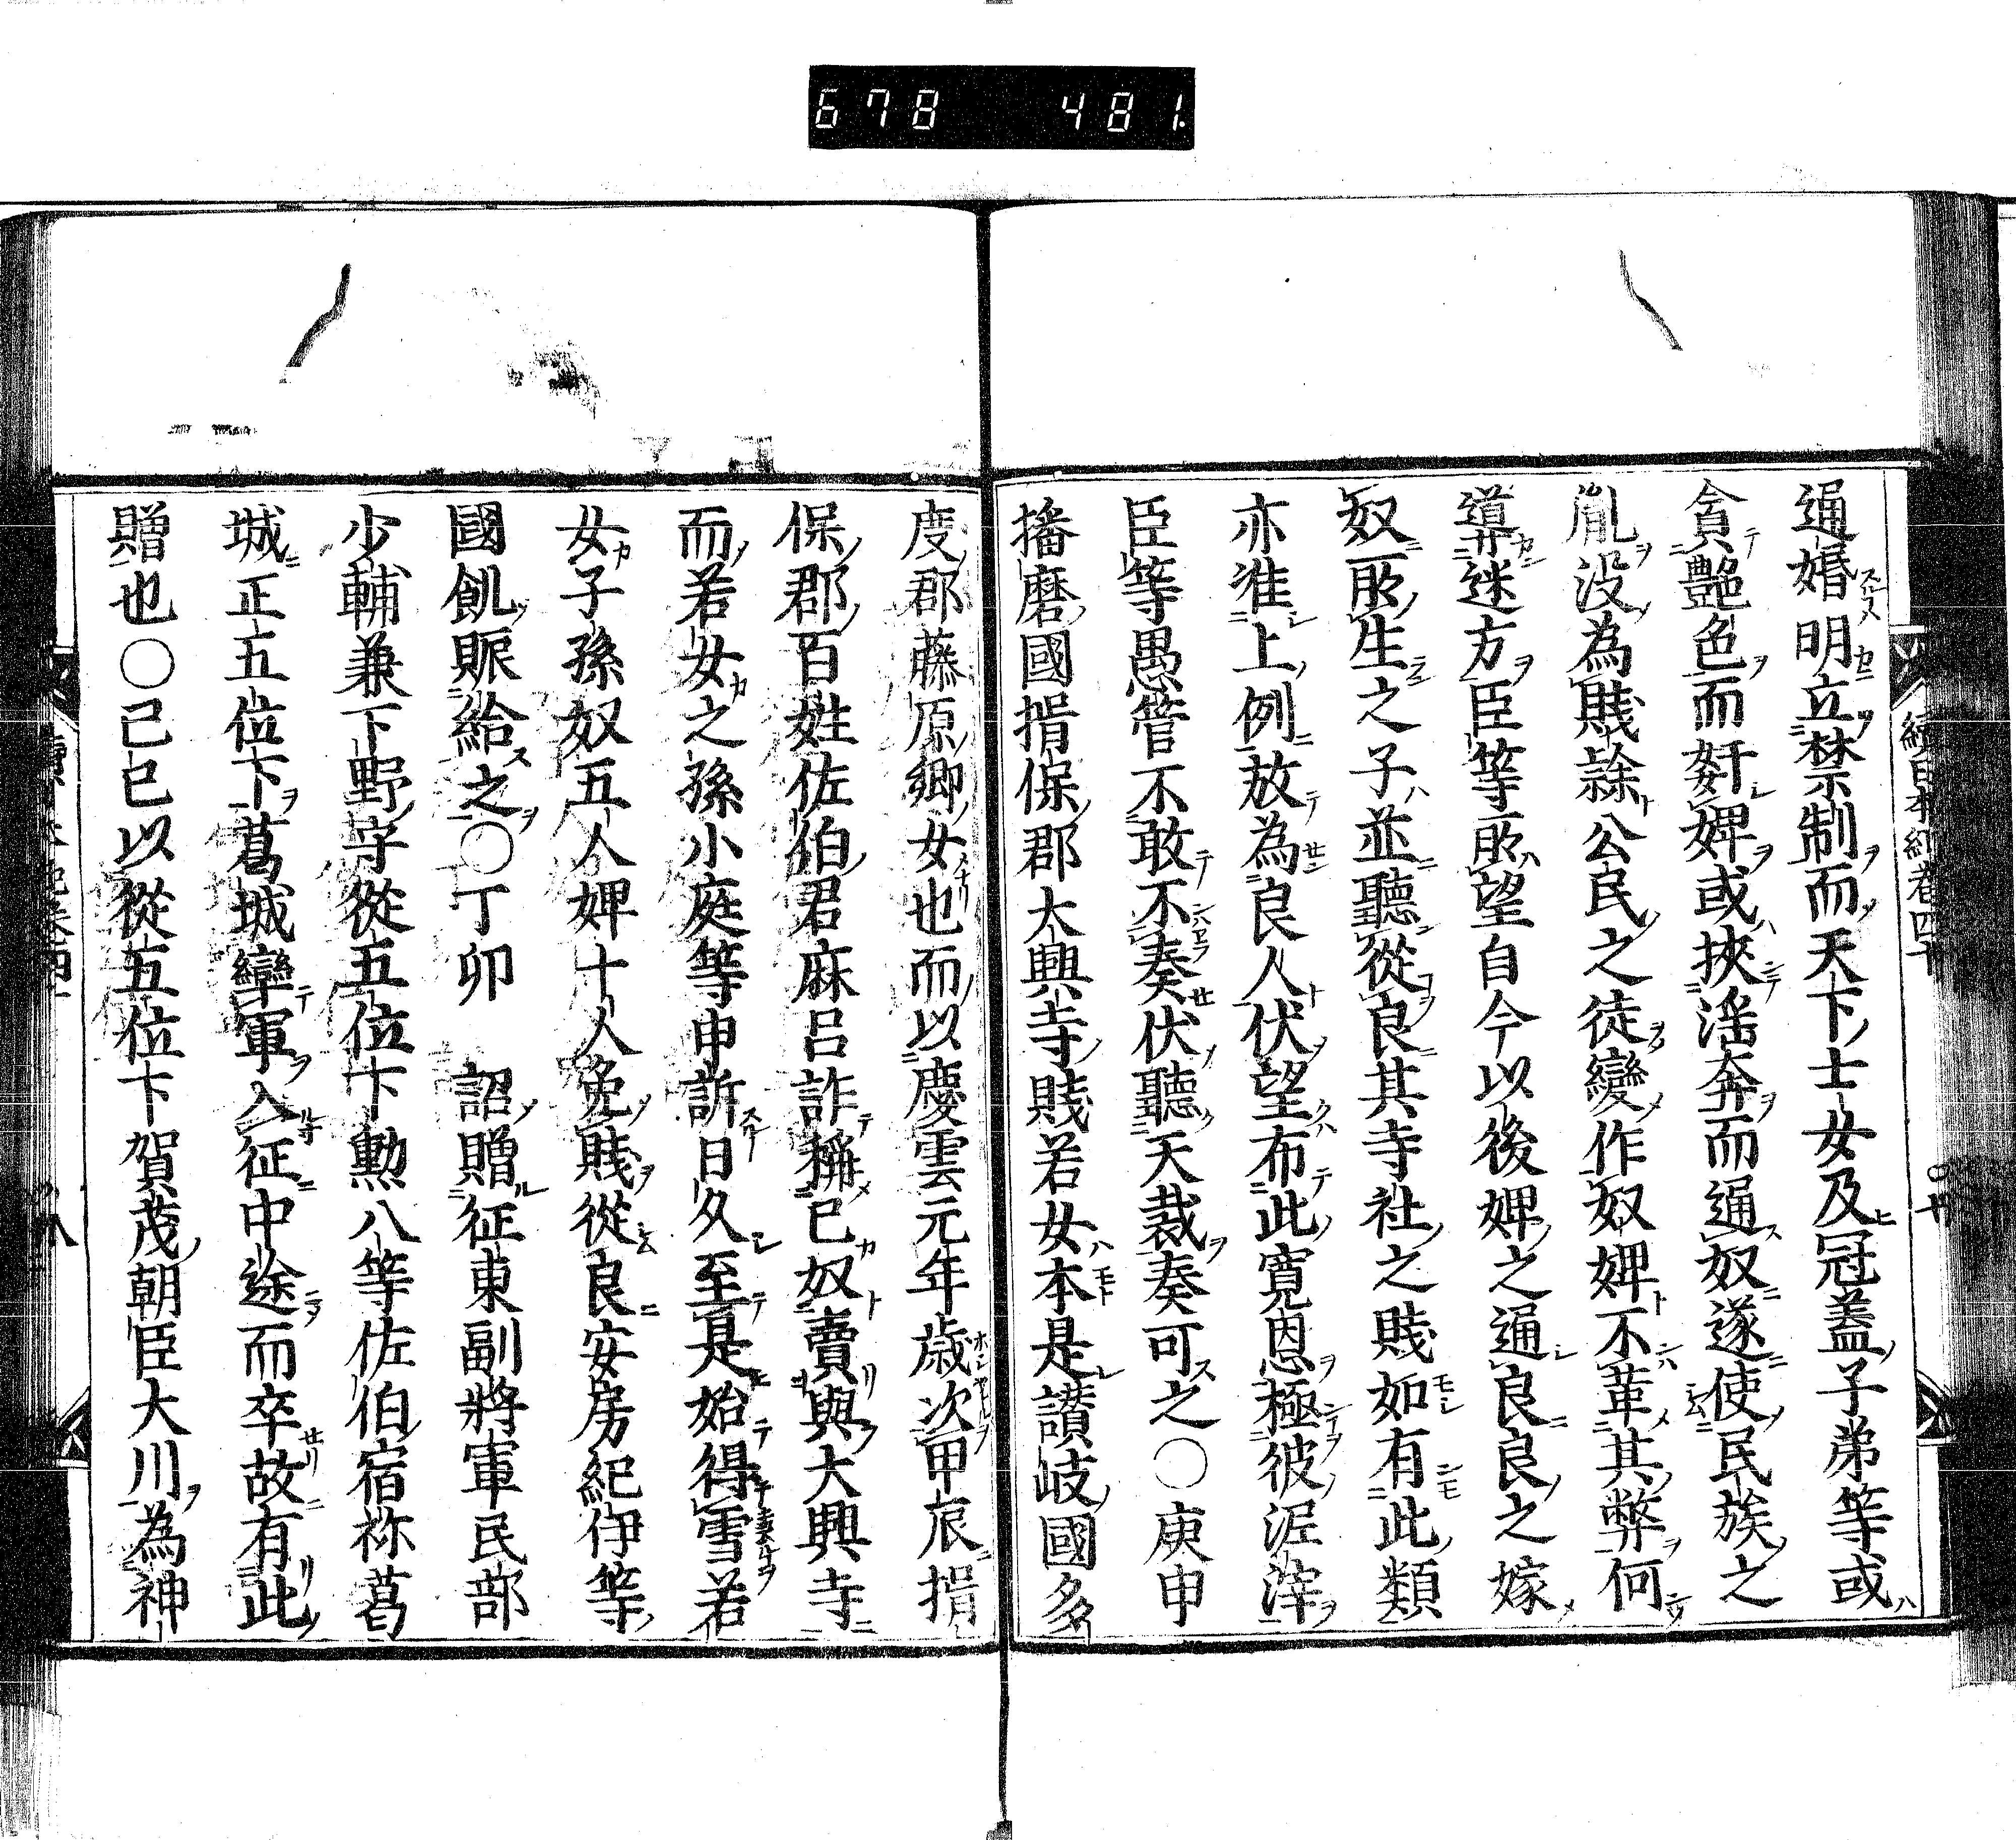 678 481
通婚明立禁制而天下士女及冠蓋子弟等或
貪艶色而姧婢或挾滛奔而通奴遂使民族之
胤没為賤𨽻公民之徒變作奴婢不革其弊何
導迷方臣等所望自今以後婢之通良良之嫁
奴所生之子並聽從良其寺社之賤如有此類
亦准上例放為良人伏望布此寬恩極彼泥滓
臣等愚管不敢不奏伏聽天裁奏可之〇庚申
播磨國揖保郡大興寺賤若女本是讃岐國多
度郡藤原鄉女也而以慶雲元年歳次甲辰揖
保郡百姓佐伯君麻呂詐稱已奴賣與大興寺
而若女之孫小庭等申訴日久至是始得雪若
女子孫奴五人婢十人免賤從良安房紀伊等
國飢賑給之〇丁卯 詔贈征東副將軍民部
少輔兼下野守從五位下勳八等佐伯宿祢葛
城正五位下葛城率軍入征中途而卒故有此
贈也〇己巳以從五位下賀茂朝臣大川為神